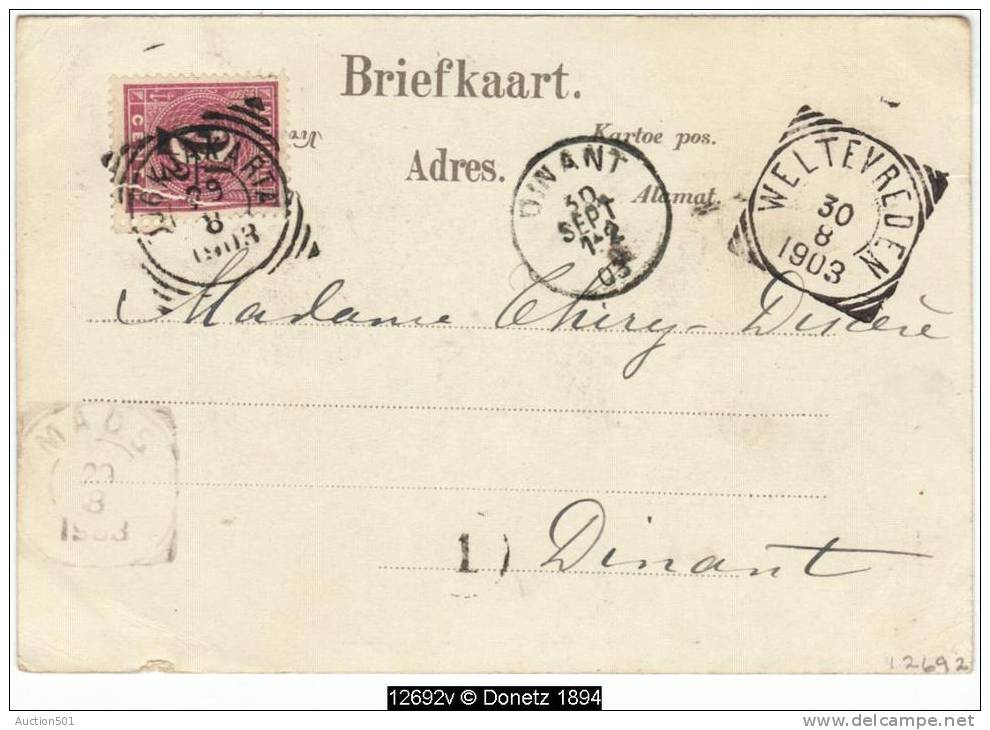 Briefkaart.
Kartoe pos.
Adres.
Alamat.
DINANT
30
SEPT
1-2
03
WELTEVREDEN
30
8
1903
29
8
1903
Madame Thiry-Disière
MAOS
29
8
1903
1)
Dinant
12692
12692v © Donetz 1894
Auction501
delcampe.net